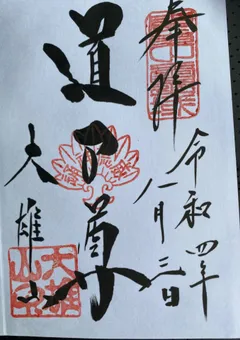 奉拝
令和四年
八月三日
道了尊
大雄山